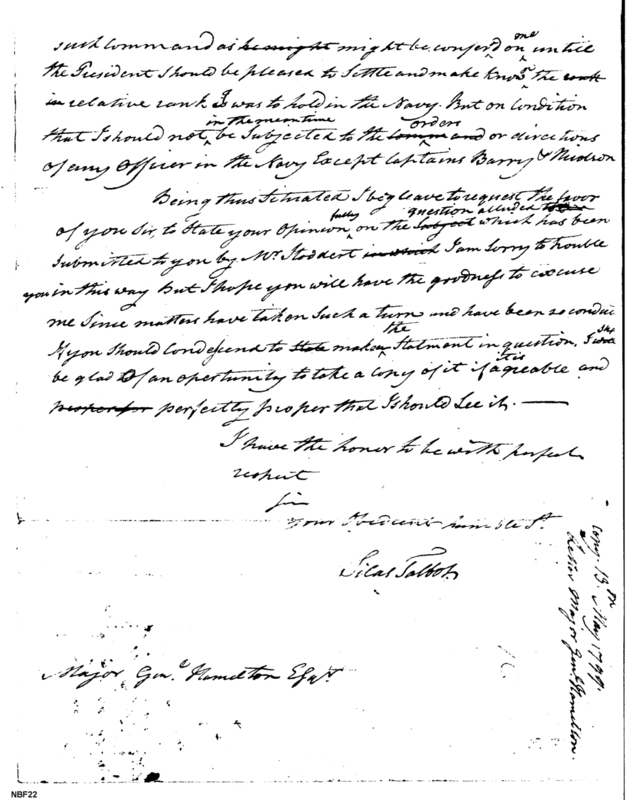 such Command as he might might be confer'd on me untill
the President should be pleased to Settle and make known the rank
in relative rank I was to hold in the Navy. But on Condition
that I should not in the meantime be Subjected to the Command orders or directions
of any Officer in the Navy Except Captains Barry & Nicholson
Being thus Situated I beg leave to request the favor
of you Sir, to State your Opinion fully on the Subject question alluded to which has been
Submitted to you by Mr. Stoddert in which I am Sorry to trouble
you in this way But I hope you will have the goodness to excuse
me Since matters have taken Such a turn and have been so
If you Should Condescend to State make the Statment in question. I
be glad Of an opertunity to take a Copy of it if it is agreable and
proper for perfectly proper that I should See it.—
I have the honor to be with perfect
respect
Sir
your Obedient humble St.
Silas Talbot
Major Genl. Hamilton Esqr.
Copy. 13. May 1799.
Letter Major Genl. Hamilton.
NBF22